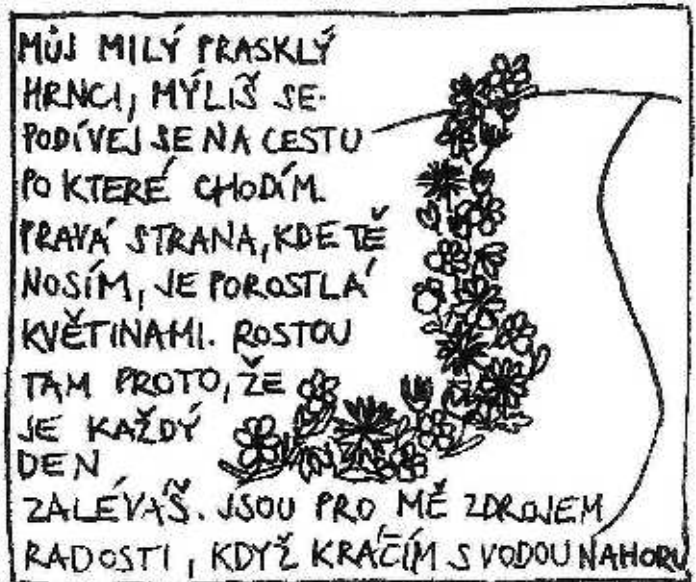 MŮJ MILÝ PRASKLÝ
HRNCI, MÝLIŠ SE.
PODÍVEJ SE NA CESTU
PO KTERÉ CHODÍM.
PRAVÁ STRANA, KDE TĚ
NOSÍM, JE POROSTLÁ
KVĚTINAMI. ROSTOU
TAM PROTO, ŽE
JE KAŽDÝ
DEN
ZALÉVÁŠ. JSOU PRO MĚ ZDROJEM
RADOSTI, KDYŽ KRÁČÍM S VODOU NAHORU